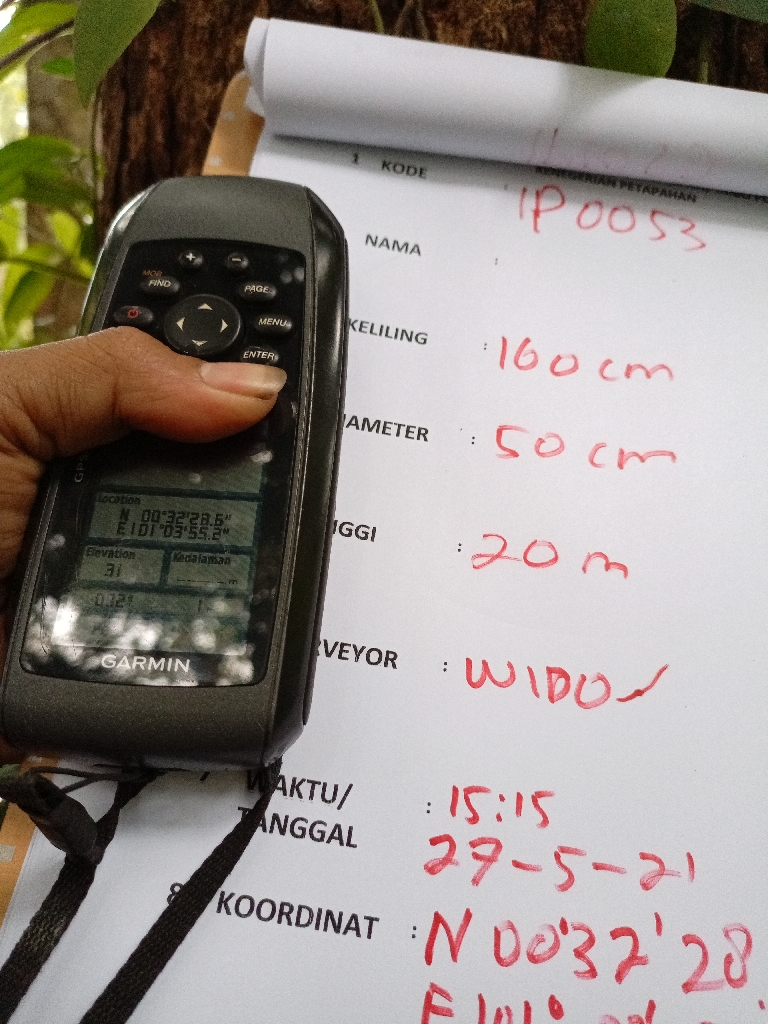 KENEGERIAN PETAPAHAN
1 KODE : IP0053
NAMA :
KELILING : 160 cm
IAMETER : 50 cm
IGGI : 20 m
RVEYOR : WIDO
WAKTU/ : 15:15
TANGGAL 27-5-21
8 KOORDINAT : N 00°32'28
E 101°
+ -
MOB
FIND PAGE
MENU
ENTER
Location
N 00°32'28.6"
E101°03'55.2"
Elevation Kedalaman
31 m
GARMIN